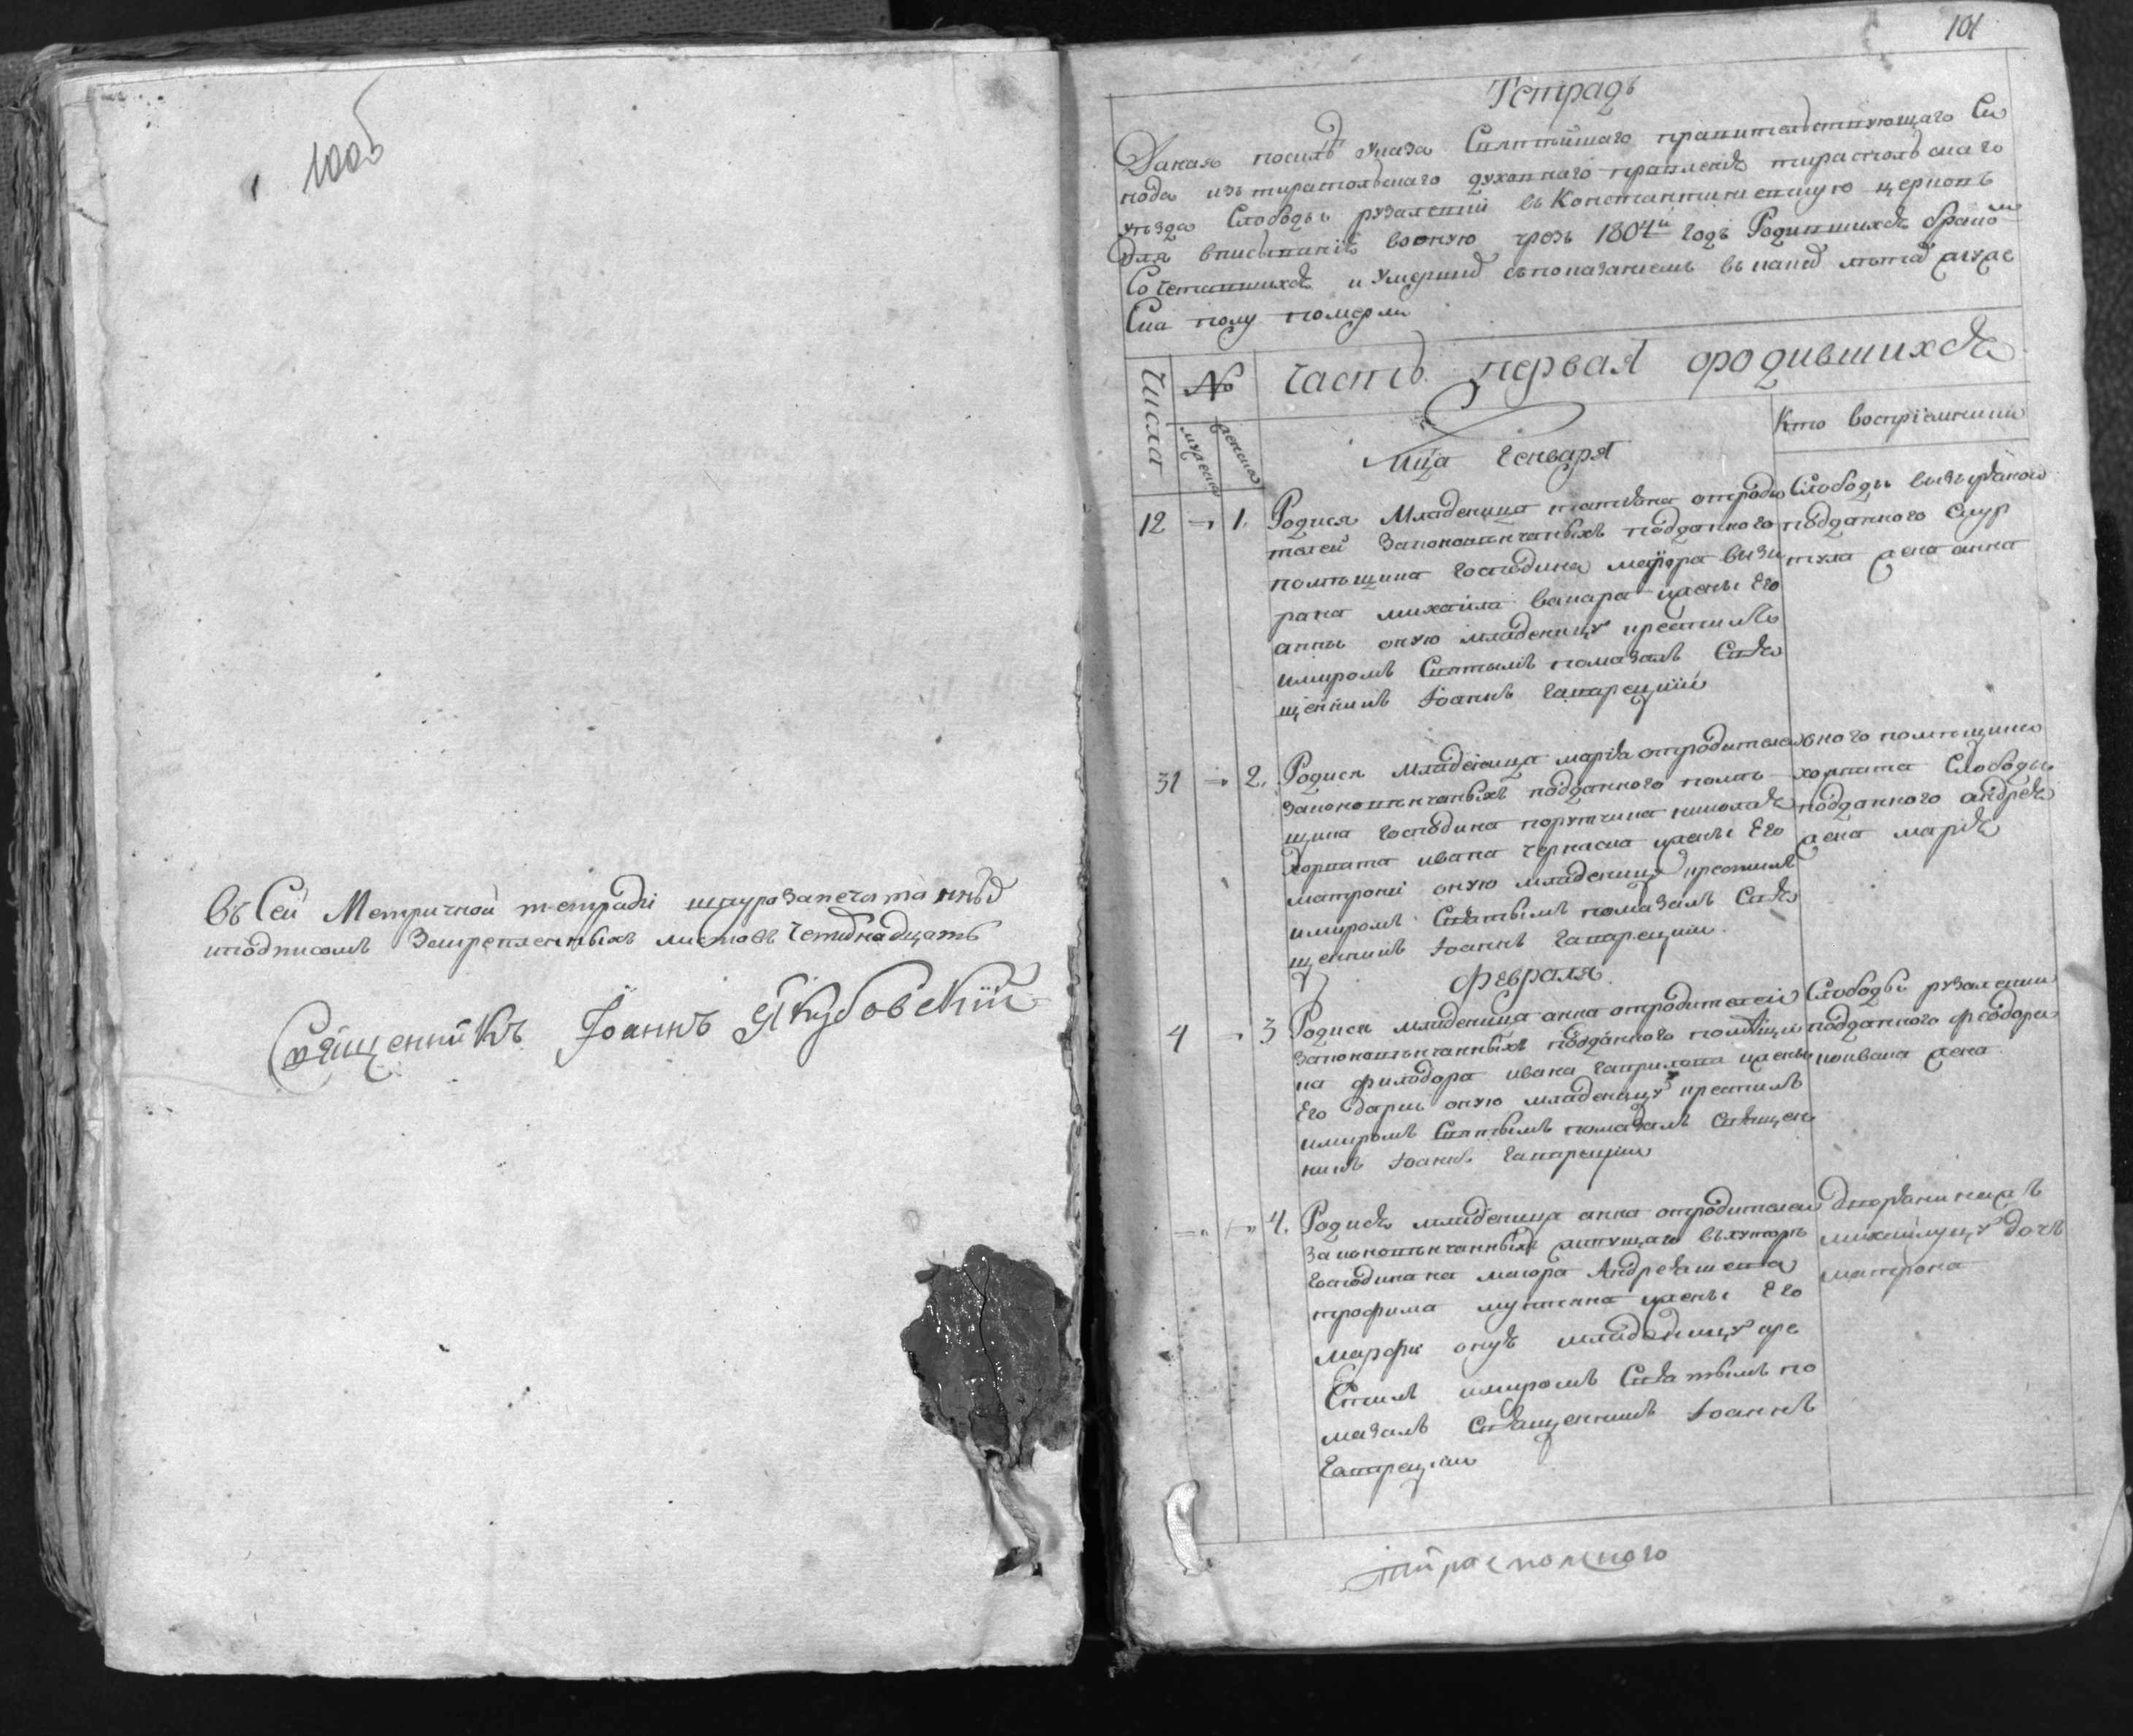 100б
Въ Сей Метричной тетрадѣ шнурозапечатанныхъ
иподписомъ Закрепленныхъ листовъ Четирнадцать
Священникъ Іоаннъ Якубовскій
101
Тетрадь
Даная посилѣ Указа Святѣйшаго правительствующаго Си
нода изъ тираспольского духовнаго правления тираспольскаго
уезда Слободы рузалений въ Константиновскую церковъ
для вписывания вонную чрезь 1804й годъ Родившихся бракомъ
Сочетавшихся и Умерших съпоказаниемъ въ каких летах
Часть первая ородившихся
Числа
№
мужеска
женска
Мца Генваря
Кто Воспріемники
12 — 1. Родися Младеница татияна отроди
телей Законовѣнчаныхъ подданного
помѣщика господина маіора визи
рана михаила
анны оную младеницу крестилъ
имиромъ Святымъ помазалъ Свя
щенникъ Іоаннъ
Слободы
подданного
жена анна
31 — 2. Родися Младеница мария отродителей
Законовѣнчаныхъ подданного помѣ
щика господина порутчика николая
Корпата ивана черкаска жены Его
матроны оную младеницу крестилъ
имиромъ Святымъ помазалъ Свя
щенникъ Іоаннъ
оного помѣщика
корпата Слободы
подданного андрея
жена мария
Февраля
4 — 3 Родися младеница анна отродителей
Законовѣнчанныхъ подданного помѣщи
ка филодора ивана гаврилова жены
Его дарии оную младеницу крестилъ
имиромъ Святымъ помазалъ Священ
никъ Іоаннъ
Слободы рузалении
подданного феодора
жена
4. Родися младеница анна отродителей
Законовѣнчанныхъ живущаго въхуторѣ
господина маіора
трофима жены Его
марфы онуя младеницу кре
Стилъ имиромъ Святымъ по
мазалъ Священникъ Іоаннъ
дочь
матрона
Тираспольского